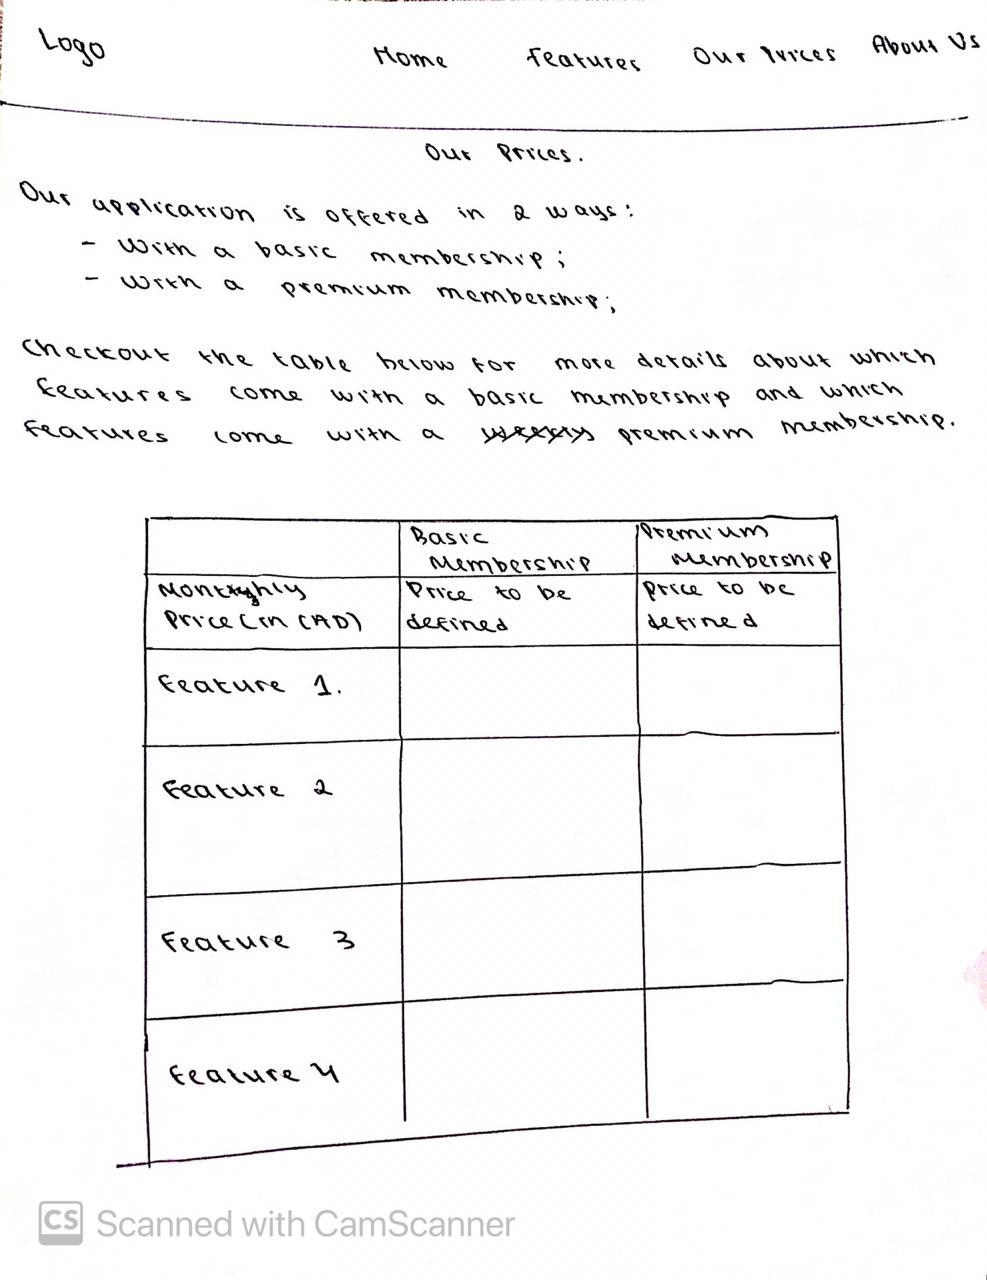 Logo
Home Features Our Prices About Us
Our Prices.
Our application is offered in 2 ways:
- With a basic membership;
- With a premium membership;
Checkout the table below for more details about which
features come with a basic membership and which
features come with a premium membership.
Basic Premium
Membership Membership
Monthly Price to be Price to be
Price (in CAD) defined defined
Feature 1.
Feature 2
Feature 3
Feature 4
CS Scanned with CamScanner